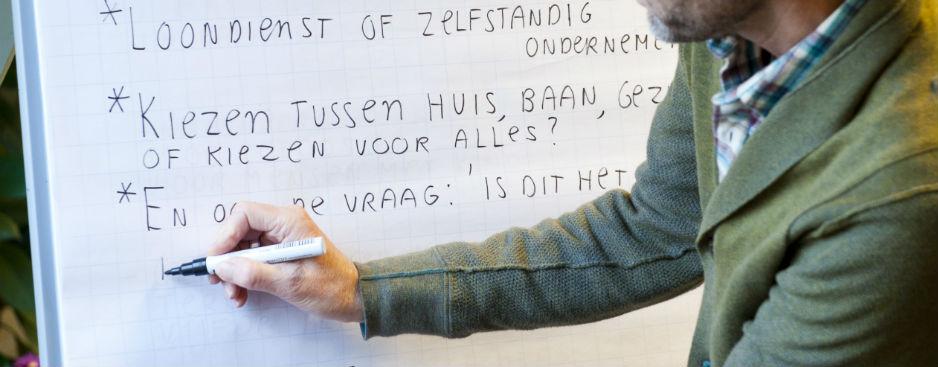 * LOONDIENST OF ZELFSTANDIG
* KIEZEN TUSSEN HUIS, BAAN,
OF KIEZEN VOOR ALLES?
* EN VRAAG: 'IS DIT HET